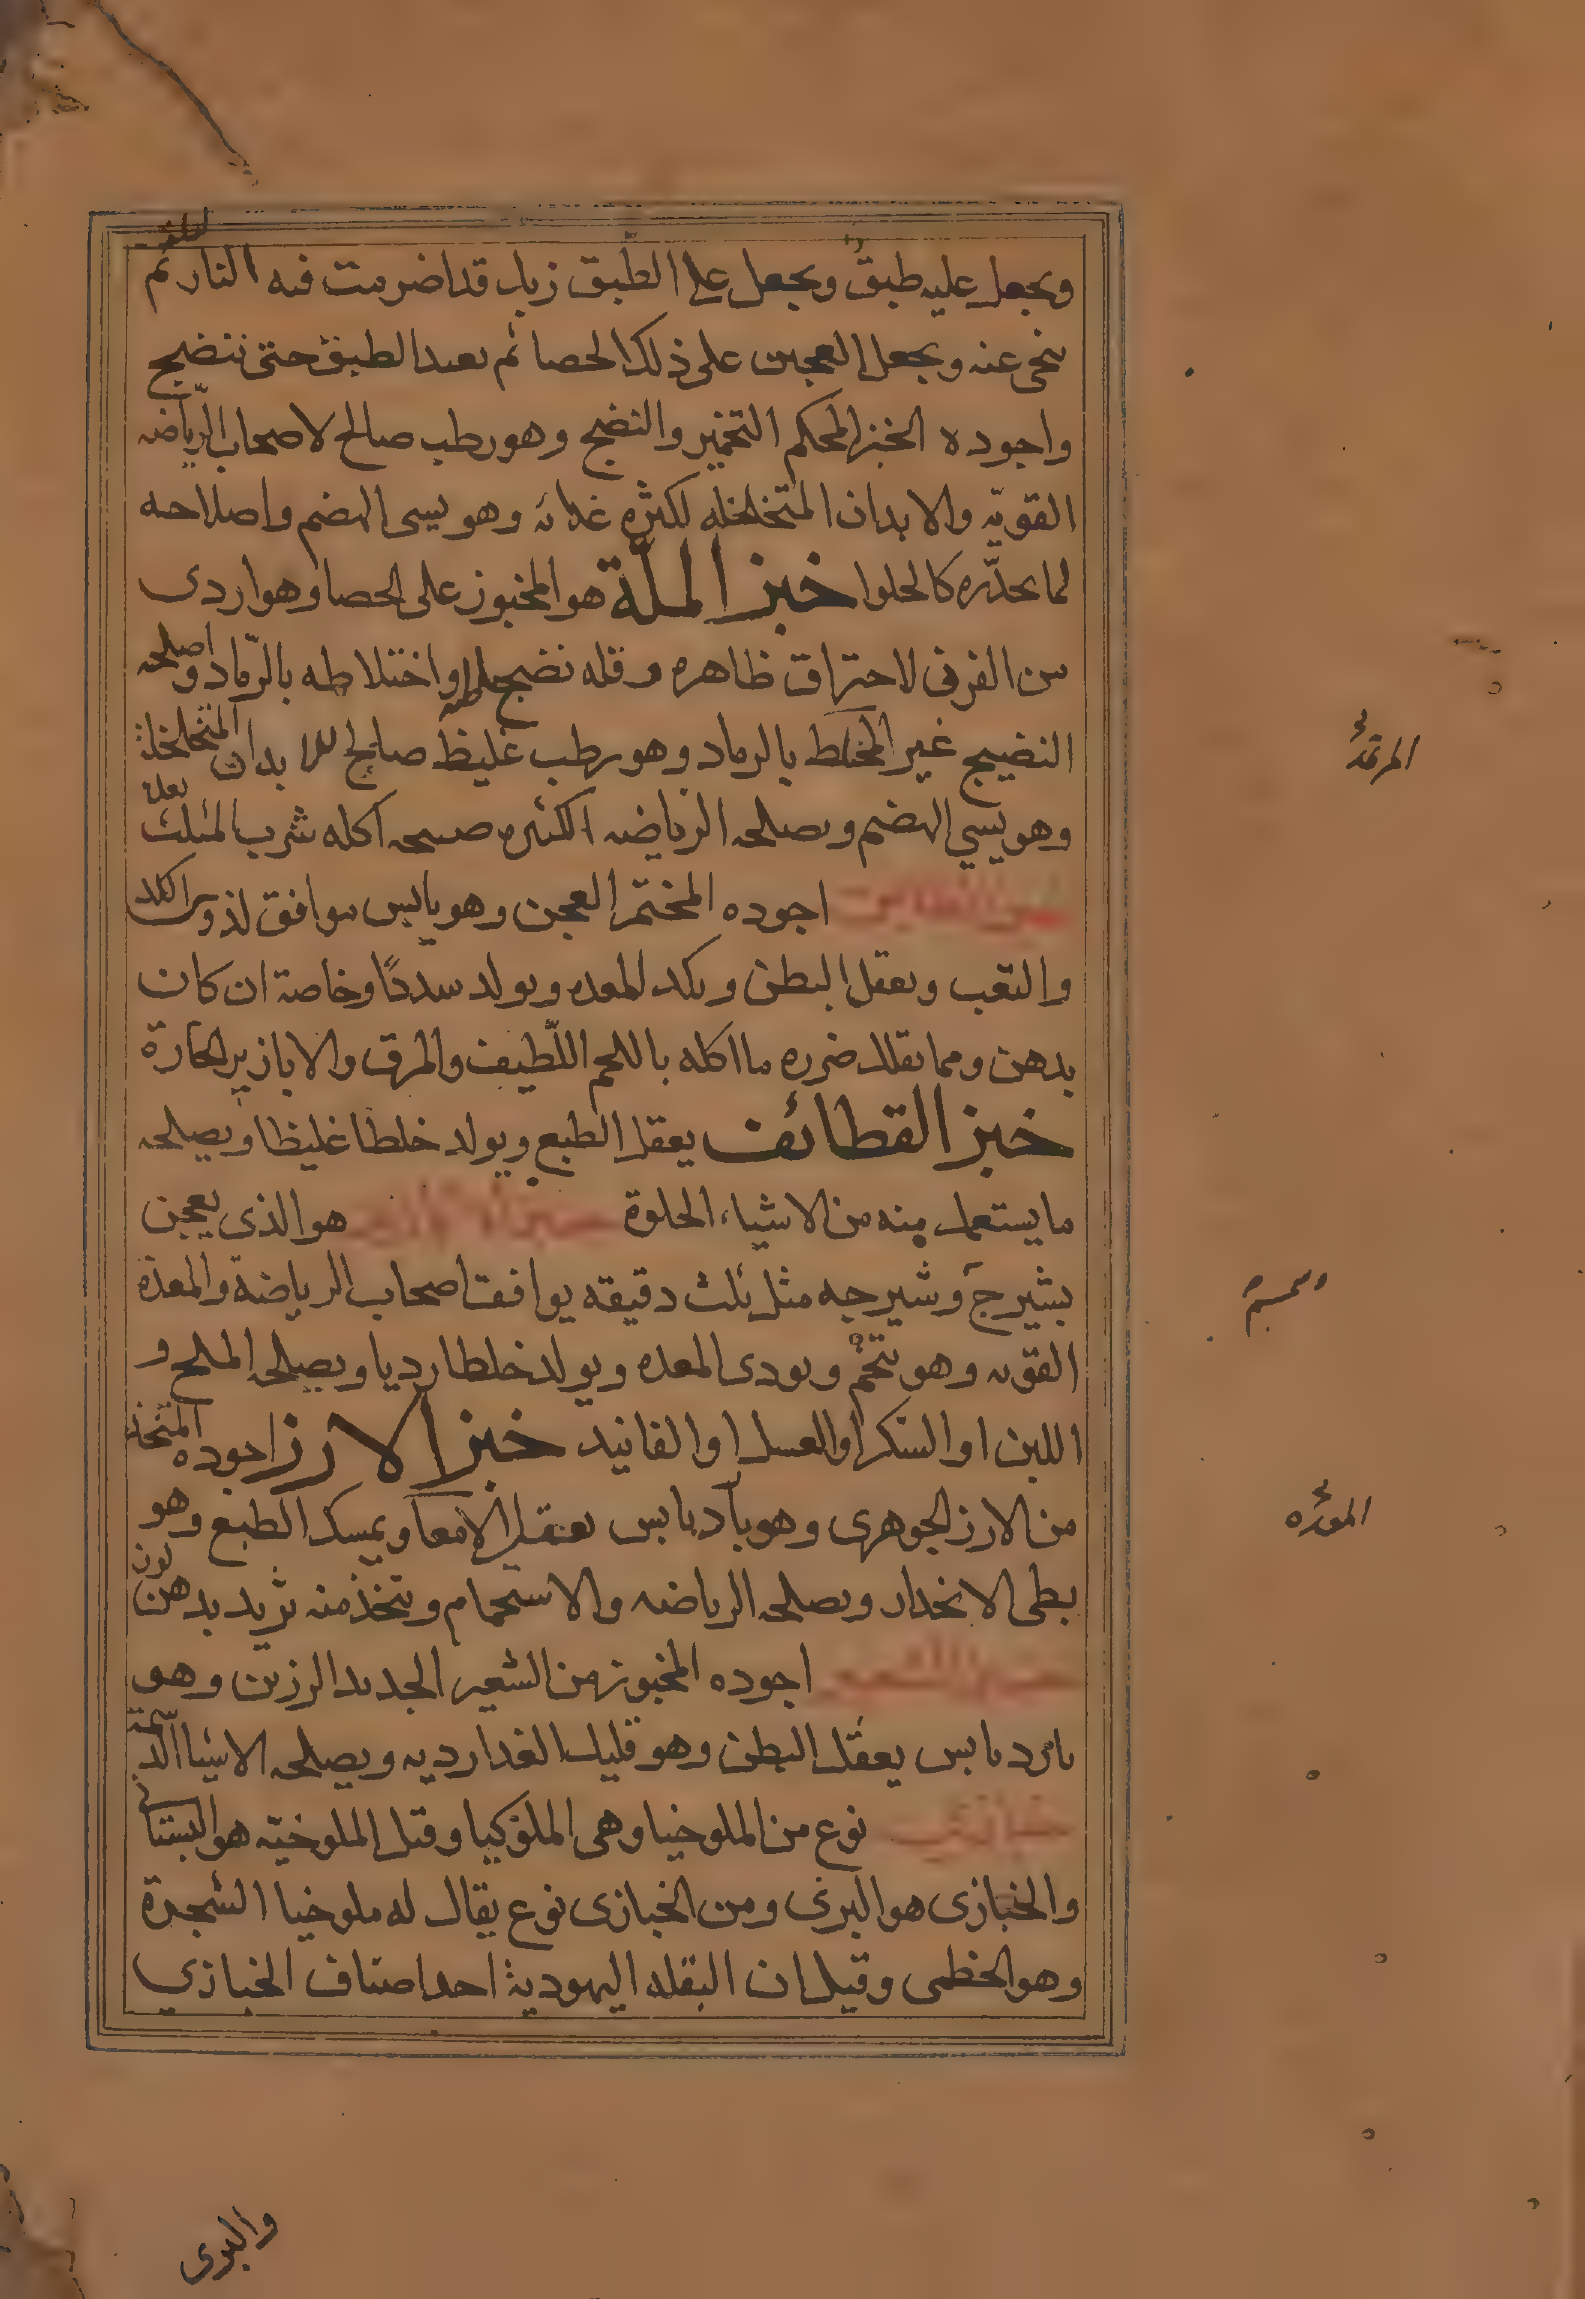 ويجعل عليه طبق ويجعل على الطبق زبل قد اضرمت فيه النار ثم
ينحى عنه ويجعل العجين على ذلك الحصا ثم يعيد الطبق حتى ينضج
واجوده الخبز المحكم التخمير والنضج وهو رطب صالح لاصحاب الرياضه
القويه والابدان المتخلخله لكثره غذائه وهو بسى الهضم واصلاحه
لما يحدره كالحلوا خبز الملة هو المخبوز على الحصا وهو اردى
من الفرنى لاحتراق ظاهره وقله نضج باطنه واختلاطه بالرماد واصلحه
النضيج غير المختلط بالرماد وهو رطب غليظ صالح للابدان المتخلخلة
وهو بسي الهضم ويصلحه الرياضه الكثيره صبيحه اكله شرب المثلث بعده
اجوده المختمر العجين وهو يابس موافق لذوى الكد
والتعب ويعقل البطن ويكد المعده ويولد سددًا وخاصة ان كان
بدهن ومما يقلل ضرره ما اكله باللحم اللطيف والمرق والابازير الحارة
خبز القطائف يعقل الطبع ويولد خلطا غليظا ويصلحه
ما يستعمل منه من الاشياء الحلوة هو الذي يعجن
بشيرج وشيرجه مثل ثلث دقيقه يوافق اصحاب الرياضة والمعدة
القويه وهو يتخم ويودى المعده ويولد خلطا رديا ويصلحه الملح و
اللبن او السكر او العسل او الفانيد خبز الارز اجوده المتخذ
من الارز الجوهرى وهو بارد يابس يعقل الامعا ويمسك الطبع وهو
بطى الانحدار ويصلحه الرياضه والاستحمام ويتخذ منه ثريد بدهن لوز
خبز الشعير اجوده المخبوز من الشعير الجديد الرزين وهو
بارد يابس يعقل البطن وهو قليل الغدا رديه ويصلحه الاشيا الدسمة
نوع من الملوخيا وهى الملوكيا وقيل الملوخيه هو البستانى
والخبازى هو البرى ومن الخبازى نوع يقال له ملوخيا الشجرة
وهو الخطمى وقيل ان البقله اليهودية احد اصناف الخبازي
والبرى